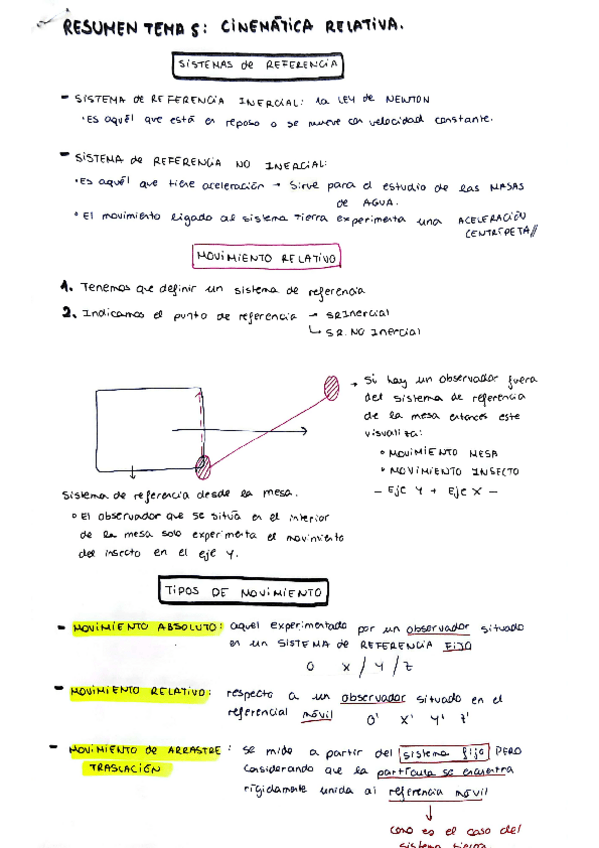 RESUMEN TEMA 5: CINEMÁTICA RELATIVA.
SISTEMAS de REFERENCIA
- SISTEMA de REFERENCIA INERCIAL: 1a LEY de NEWTON
· Es aquél que está en reposo o se mueve con velocidad constante.
- SISTEMA de REFERENCIA NO INERCIAL:
· Es aquél que tiene aceleración → Sirve para el estudio de las MASAS
de AGUA.
· El movimiento ligado al sistema tierra experimenta una ACELERACIÓN
CENTRÍPETA//
MOVIMIENTO RELATIVO
1. Tenemos que definir un sistema de referencia
2. Indicamos el punto de referencia → SR Inercial
↳ S R. NO Inercial
→ Si hay un observador fuera
del sistema de referencia
de la mesa entonces este
visualiza:
· MOVIMIENTO MESA
· MOVIMIENTO INSECTO
- Eje Y + Eje X -
Sistema de referencia desde la mesa.
· El observador que se situá en el interior
de la mesa solo experimenta el movimiento
del insecto en el eje Y.
TIPOS DE MOVIMIENTO
- MOVIMIENTO ABSOLUTO: aquel experimentado por un observador situado
en un SISTEMA de REFERENCIA FIJO
O X / Y / Z
- MOVIMIENTO RELATIVO: respecto a un observador situado en el
referencial móvil O' X' Y' Z'
- MOVIMIENTO de ARRASTRE: se mide a partir del sistema fijo PERO
TRASLACIÓN considerando que la partícula se encuentra
rígidamente unida al referencia móvil
↓
como es el caso del
sistema tierra.